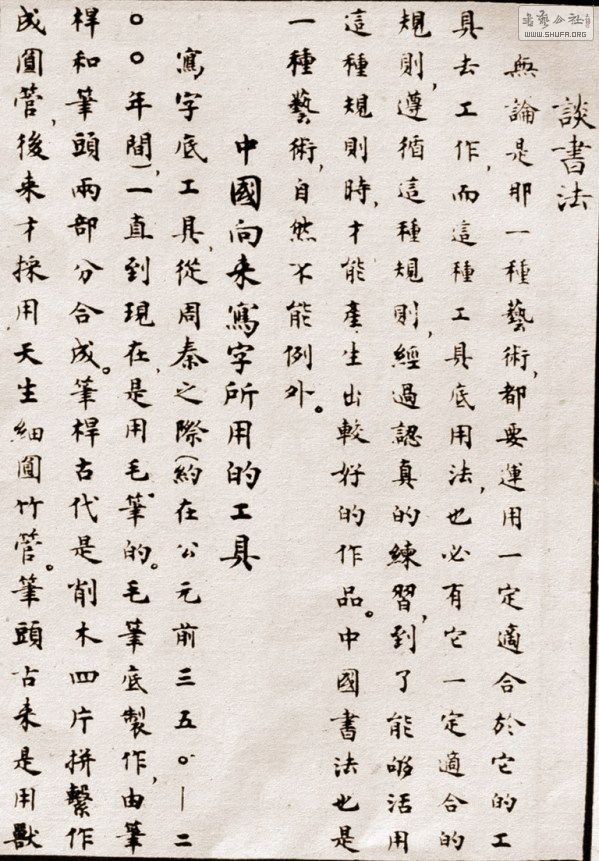 談書法
無論是那一種藝術,都要運用一定適合於它的工
具去工作,而這種工具底用法,也必有它一定適合的
規則,遵循這種規則,經過認真的練習,到了能够活用
這種規則時,才能產生出較好的作品。中國書法也是
一種藝術,自然不能例外。
中國向来寫字所用的工具
寫字底工具,從周秦之際(約在公元前三五〇—二
〇〇年間)一直到現在,是用毛筆的。毛筆底製作,由筆
桿和筆頭兩部分合成。筆桿古代是削木四片拼繫作
成圓管,後来才採用天生細圓竹管。筆頭古来是用獸
書藝公社
WWW.SHUFA.ORG